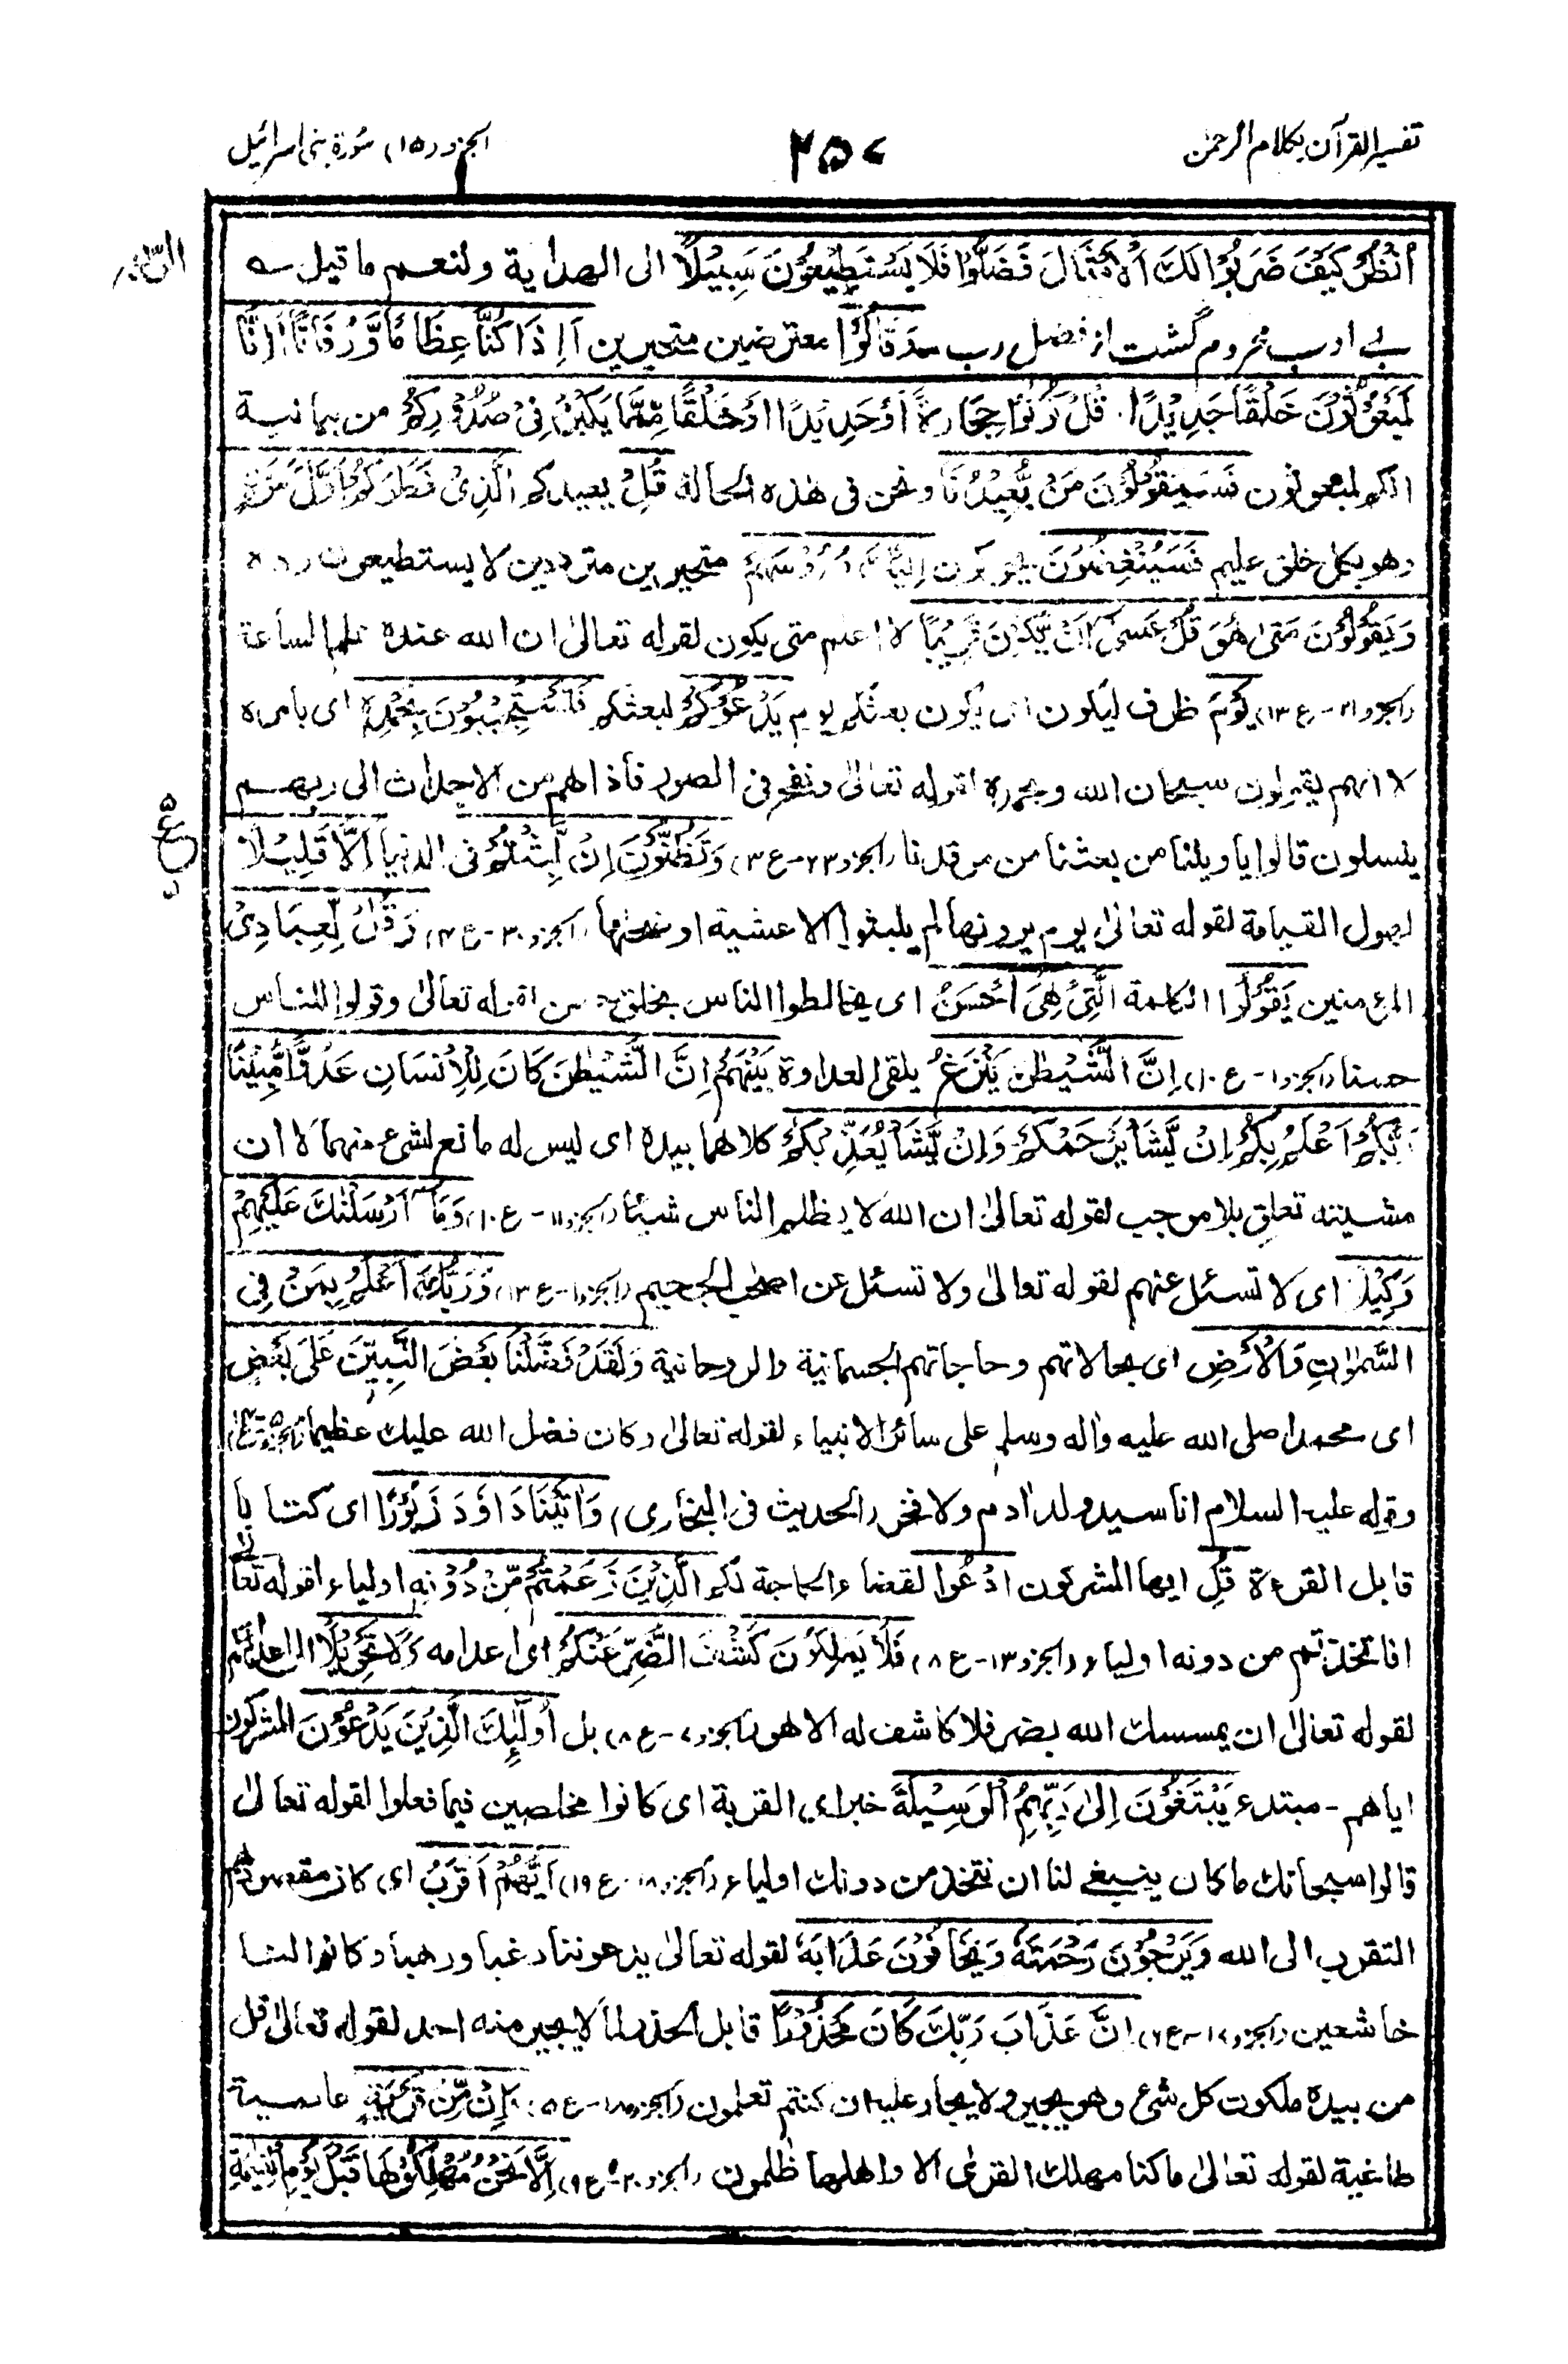 تفسير القرآن بكلام الرحمن
۲۵۷
الجزء (۱۵) سُورة بنى اسرائيل
اُنْظُرْ كَيْفَ ضَرَبُوْا لَكَ الْاَمْثَالَ فَضَلُّوْا فَلَا يَسْتَطِيْعُوْنَ سَبِيْلًا الى الهداية ولنعم ما قيل ؎
بے ادب محروم گشت از فضل رب وَقَالُوْٓا معترضين متحيرين ءَاِذَا كُنَّا عِظَامًا وَّرُفَاتًا ءَاِنَّا
لَمَبْعُوْثُوْنَ خَلْقًا جَدِيْدًا. قُلْ كُوْنُوْا حِجَارَةً اَوْ حَدِيْدًا اَوْ خَلْقًا مِّمَّا يَكْبُرُ فِىْ صُدُوْرِكُمْ من
انكم لمبعوثون فَسَيَقُوْلُوْنَ مَنْ يُّعِيْدُنَا ونحن فى هذه الحالة قُلِ يعيدكم الَّذِىْ فَطَرَكُمْ اَوَّلَ مَرَّةٍ
وهو بكل خلق عليم فَسَيُنْغِضُوْنَ اِلَيْكَ رُءُوْسَهُمْ متحيرين مترددين لا يستطيعون
وَيَقُوْلُوْنَ مَتٰى هُوَ قُلْ عَسٰٓى اَنْ يَّكُوْنَ قَرِيْبًا لا اعلم متى يكون لقوله تعالىٰ ان الله عنده علم الساعة
(الجزء ۲۱-ع ۱۳) يَوْمَ ظرف ليكون اى يكون بعثكم يوم يَدْعُوْكُمْ لبعثكم فَتَسْتَجِيْبُوْنَ بِحَمْدِهٖ اى بامره
لا انهم يقولون سبحان الله وبحمده لقوله تعالىٰ ونفخ فى الصور فاذا هم من الاجداث الى ربهم
ينسلون قالوا يا ويلنا من بعثنا من مرقدنا (الجزء ۲۳-ع ۳) وَتَظُنُّوْنَ اِنْ لَّبِثْتُمْ فى الدنيا اِلَّا قَلِيْلًا
لهول القيامة لقوله تعالىٰ يوم يرونها لم يلبثوا الا عشية او ضحٰها (الجزء ۳۰-ع ۴) وَقُلْ لِّعِبَادِىْ
المؤمنين يَقُوْلُوا الكلمة الَّتِىْ هِىَ اَحْسَنُ اى يخالطوا الناس بخلق حسن لقوله تعالىٰ وقولوا للناس
حسنا (الجزء ۱-ع ۱۰) اِنَّ الشَّيْطٰنَ يَنْزَغُ يلقى العداوة بَيْنَهُمْ اِنَّ الشَّيْطٰنَ كَانَ لِلْاِنْسَانِ عَدُوًّا مُّبِيْنًا
رَبُّكُمْ اَعْلَمُ بِكُمْ اِنْ يَّشَاْ يَرْحَمْكُمْ وَاِنْ يَّشَاْ يُعَذِّبْكُمْ كلاهما بيده اى ليس له مانع لشىء منهما لا ان
مشيئته تعلق بلا موجب لقوله تعالىٰ ان الله لا يظلم الناس شيئا (الجزء ۱۱-ع ۱۰) وَمَآ اَرْسَلْنٰكَ عَلَيْهِمْ
وَكِيْلًا اى لا تسئل عنهم لقوله تعالىٰ ولا تسئل عن اصحٰب الجحيم (الجزء ۱-ع ۱۳) وَرَبُّكَ اَعْلَمُ بِمَنْ فِى
السَّمٰوٰتِ وَالْاَرْضِ اى بحالاتهم وحاجاتهم الجسمانية والروحانية وَلَقَدْ فَضَّلْنَا بَعْضَ النَّبِيّٖنَ عَلٰى بَعْضٍ
اى محمدا صلى الله عليه واٰله وسلم على سائر الانبياء لقوله تعالىٰ وكان فضل الله عليك عظيما
وقوله عليه السلام انا سيد ولد اٰدم ولا فخر (الحديث فى البخارى) وَاٰتَيْنَا دَاوٗدَ زَبُوْرًا اى كتابا
قابل القرءة قُلِ ايها المشركون ادْعُوا لقضاء الحاجة لكم الَّذِيْنَ زَعَمْتُمْ مِّنْ دُوْنِهٖ اولياء لقوله تعالىٰ
افاتخذتم من دونه اولياء (الجزء ۱۳-ع ۸) فَلَا يَمْلِكُوْنَ كَشْفَ الضُّرِّ عَنْكُمْ اى اعدامه وَلَا تَحْوِيْلًا
لقوله تعالىٰ ان يمسسك الله بضر فلا كاشف له الا هو (الجزء ۷-ع ۸) بل اُولٰٓئِكَ الَّذِيْنَ يَدْعُوْنَ المشركون
اياهم - مبتدء يَبْتَغُوْنَ اِلٰى رَبِّهِمُ الْوَسِيْلَةَ خبر اى القربة اى كانوا مخلصين فيما فعلوا لقوله تعالىٰ
قالوا سبحانك ما كان ينبغى لنا ان نتخذ من دونك اولياء (الجزء ۱۸-ع ۱۹) اَيُّهُمْ اَقْرَبُ اى كان مقصودهم
التقرب الى الله وَيَرْجُوْنَ رَحْمَتَهٗ وَيَخَافُوْنَ عَذَابَهٗ لقوله تعالىٰ يدعوننا رغبا ورهبا وكانوا لنا
خاشعين (الجزء ۱۷-ع ۶) اِنَّ عَذَابَ رَبِّكَ كَانَ مَحْذُوْرًا قابل الحذر لما لا يجير منه احد لقوله تعالىٰ قل
من بيده ملكوت كل شىء وهو يجير ولا يجار عليه ان كنتم تعلمون (الجزء ۱۸-ع ۵) وَاِنْ مِّنْ قَرْيَةٍ عاصية
طاغية لقوله تعالىٰ ما كنا مهلك القرىٰ الا واهلها ظٰلمون (الجزء ۲۰-ع ۹) اِلَّا نَحْنُ مُهْلِكُوْهَا قَبْلَ يَوْمِ الْقِيٰمَةِ